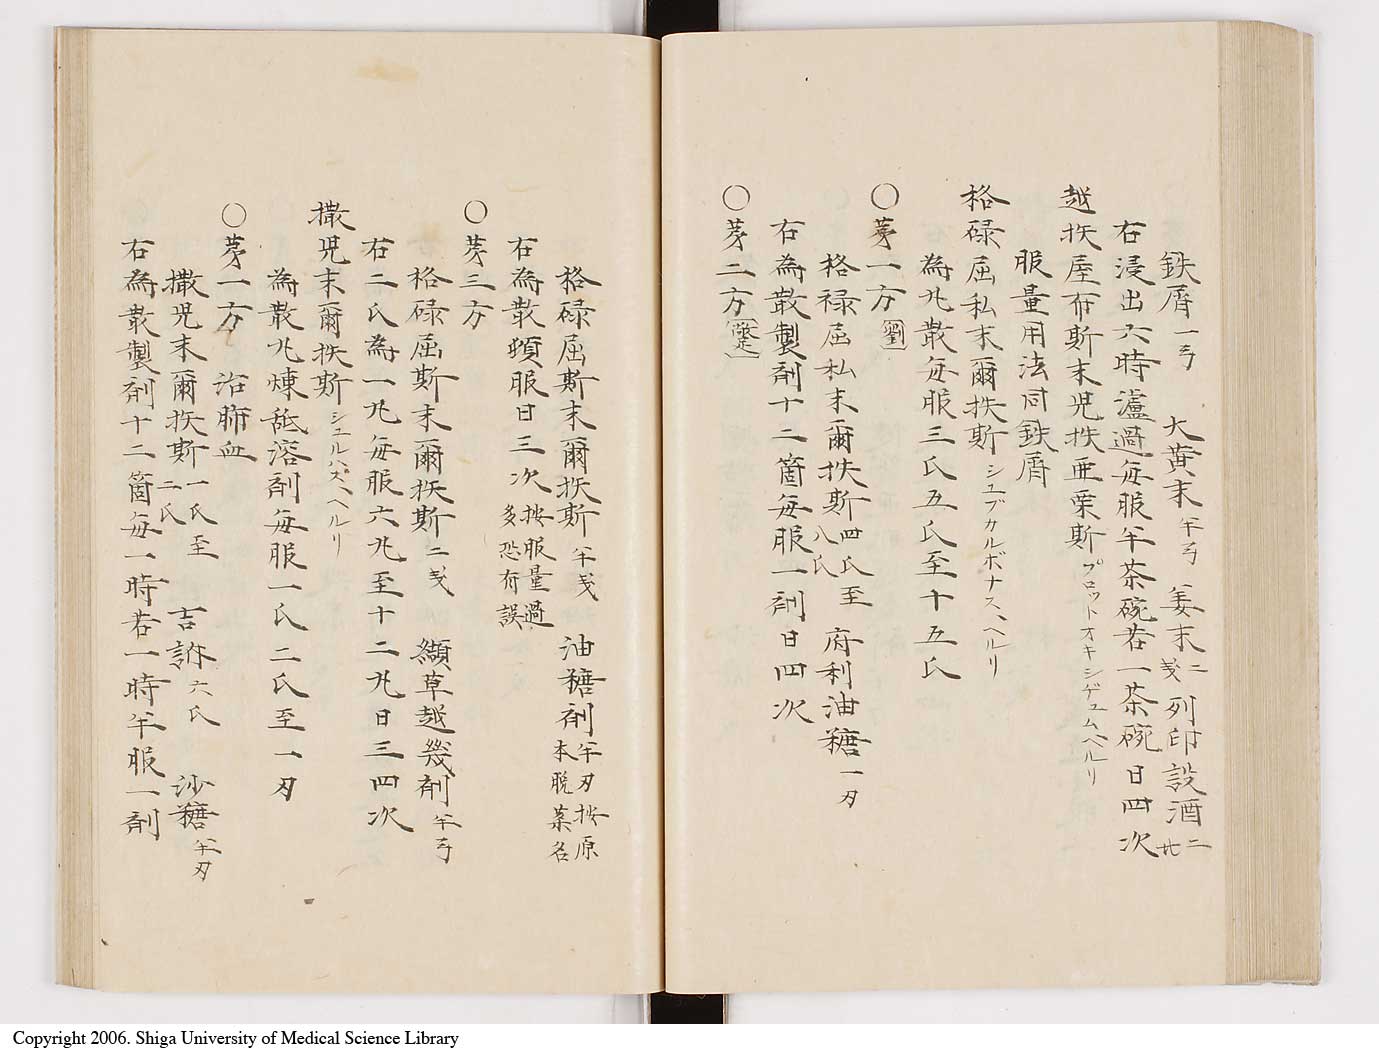 鉄屑一ヲ 大黄末半ヲ 姜末二戔 列印設酒二廿
右浸出六時濾過毎服半茶碗若一茶碗日四次
越抶屋布斯末児抶亜栗斯プロットオキシゲュムヘルリ
服量用法同鉄屑
格碌屈私末爾抶斯シュブカルボナス、ヘルリ
為丸散毎服三氏五氏至十五氏
〇第一方劉
格禄屈私末爾抶斯四氏至八氏 府利油糖一刃
右為散製剤十二箇毎服一剤日四次
〇第二方
格碌屈斯末爾抶斯半戔 油糖剤半刃按原本脱薬名
右為散頓服日三次按服量過多恐有誤
〇第三方
格碌屈斯末爾抶斯二戔 纈草越幾剤半ヲ
右二氏為一丸毎服六丸至十二丸日三四次
撒児末爾抶斯シュルハズ、ヘルリ
為散丸煉舐溶剤毎服一氏二氏至一刃
〇第一方 治肺血
撒児末爾抶斯一氏至二氏 吉 六氏 沙糖半刃
右為散製剤十二箇毎一時若一時半服一剤
Copyright 2006. Shiga University of Medical Science Library